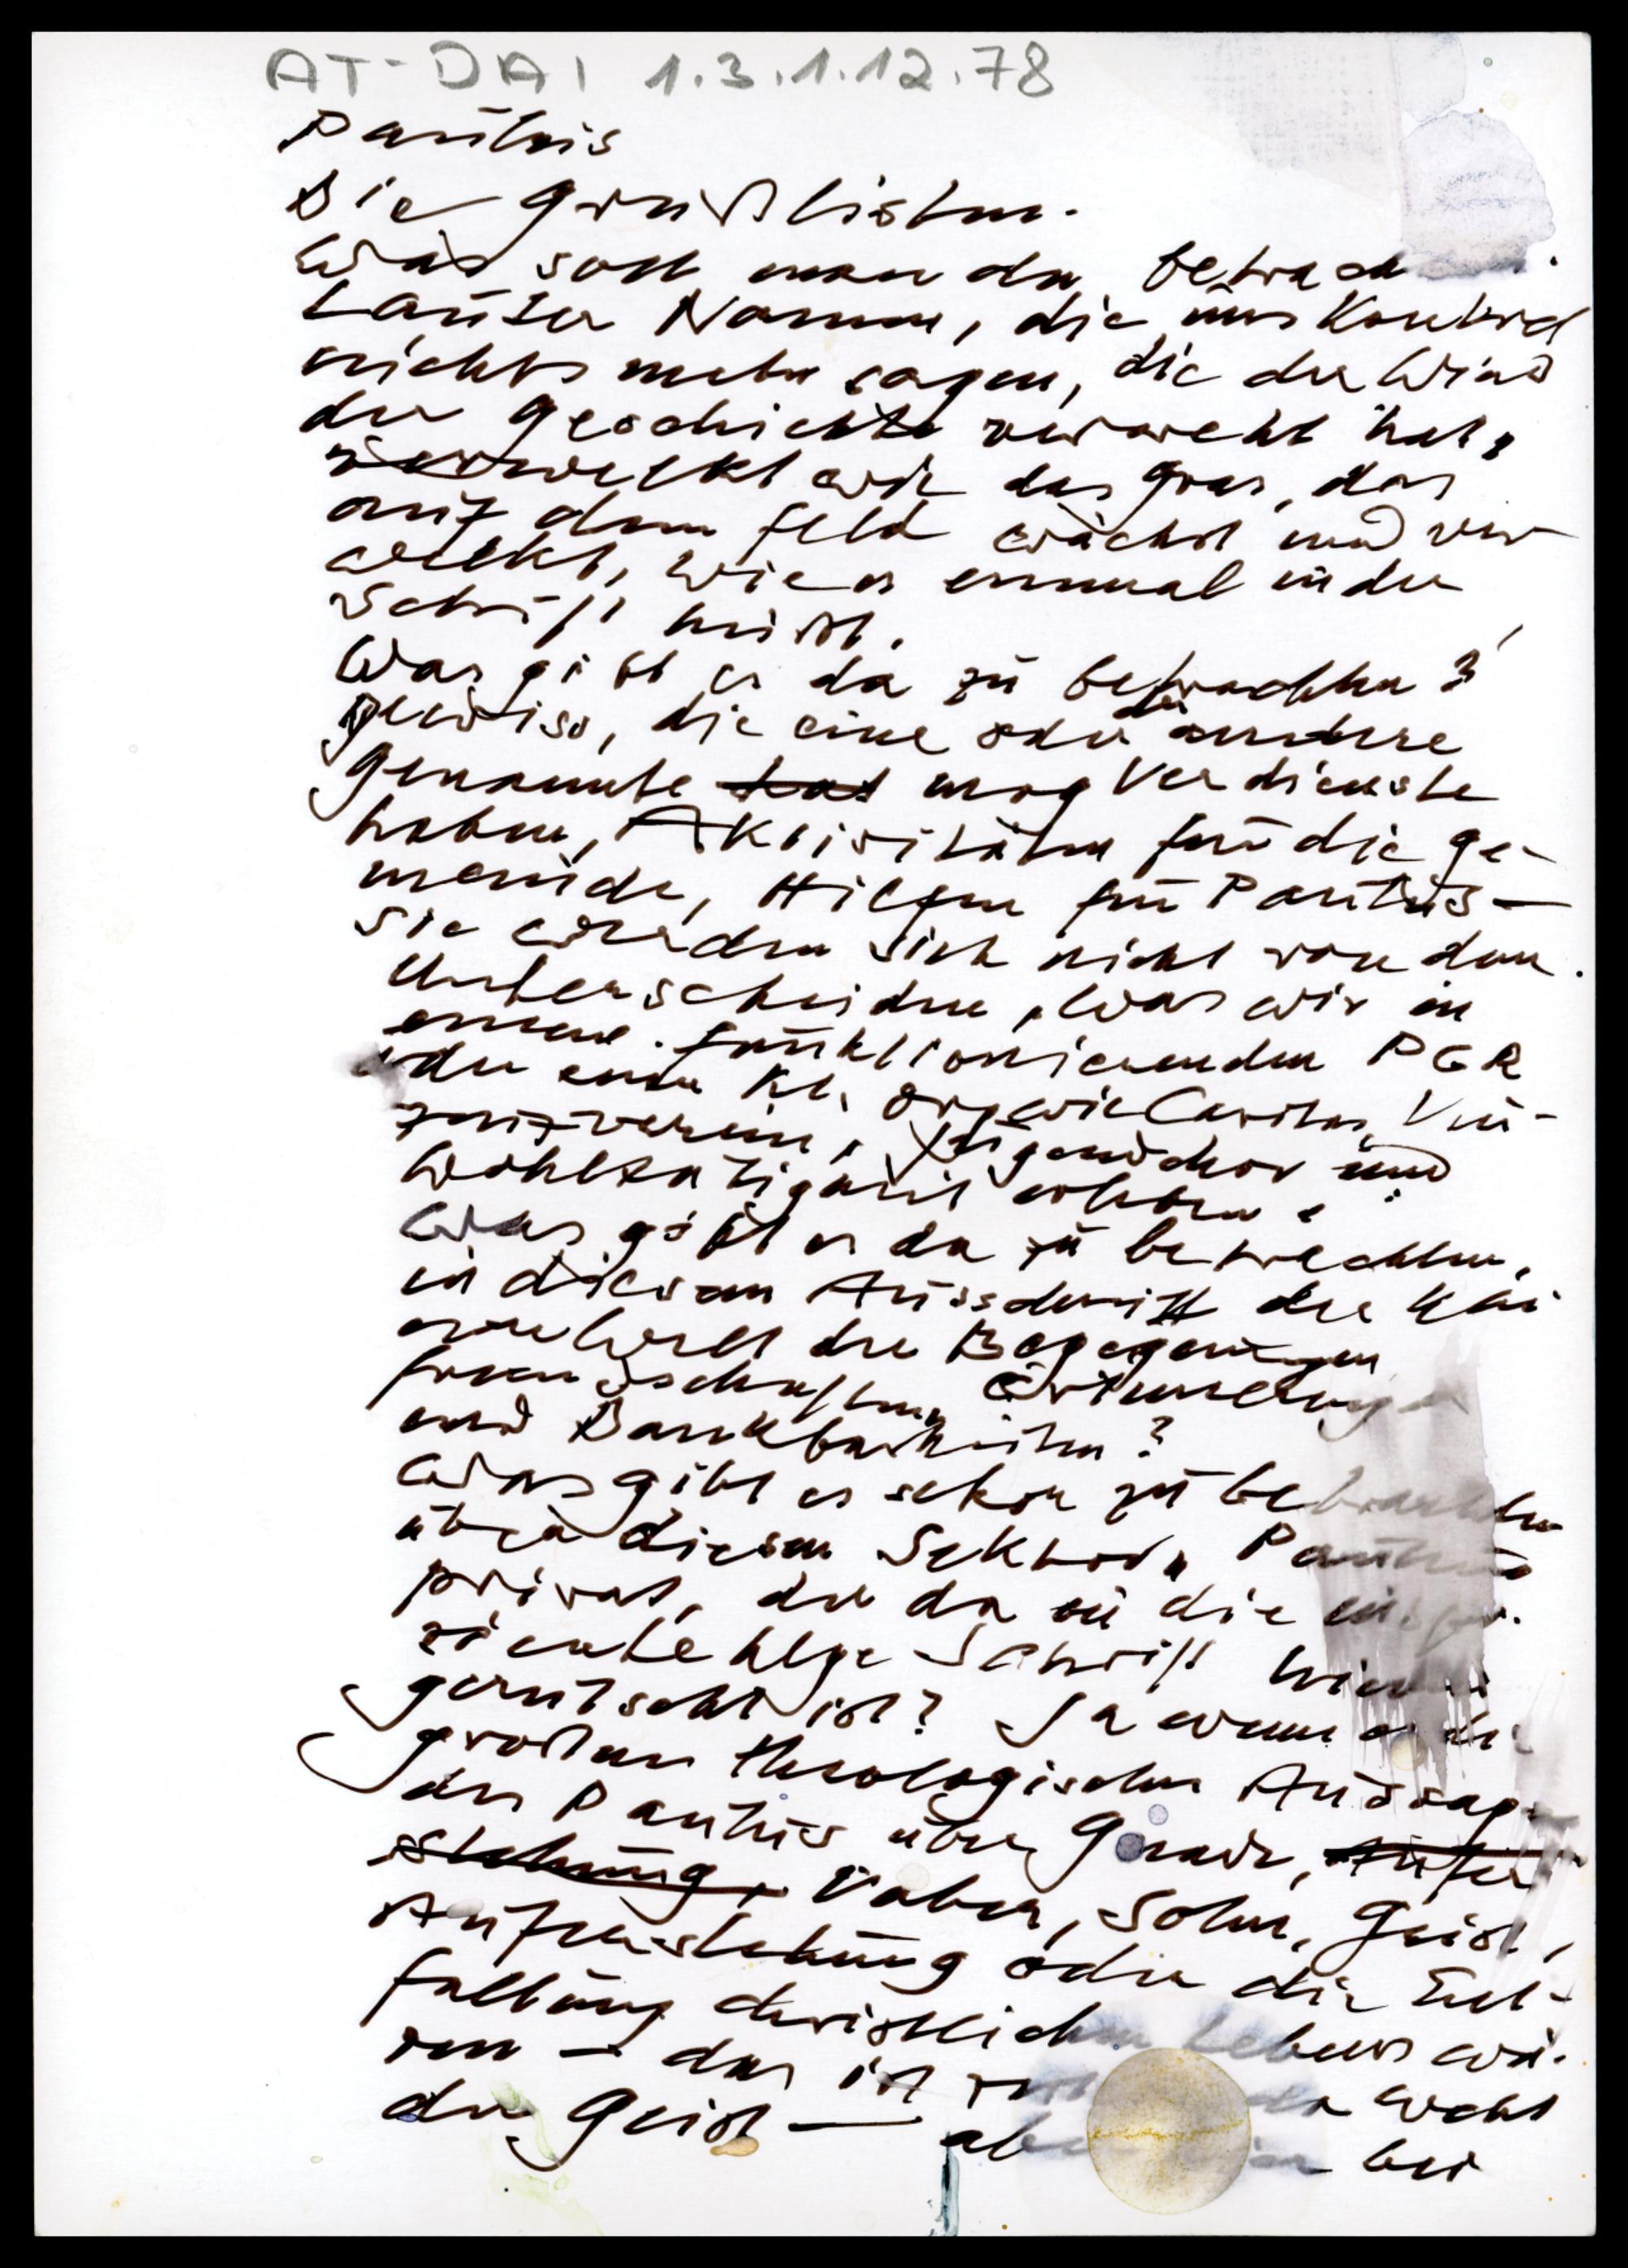 AT-DAI 1.3.1.12.78
Paulus
Die Grußlisten.
Was soll man da betrach
Lauter Namen, die uns konkret
nichts mehr sagen, die der Wind
der Geschichte verweht hat,
verwelkt wie das Gras, das
auf dem Feld wächst und ver
welkt, wie es einmal in der
Schrift heißt.
Was gibt es da zu betrachten?
Gewiss, die eine oder der andere
Genannte hat mag Verdienste
haben, Aktivitäten für die Ge-
meinde, Hilfen für Paulus —
Sie werden sich nicht von dem
unterscheiden, was wir in
einem funktionierenden PGR
oder einer kl. Org wie Caritas, Vin-
zenzverein, Jugendchor und
Wohltätigkeit erleben.
Was gibt es da zu betrachten,
in diesem Ausschnitt der klei
nen Welt der Begegnungen
Freundschaften, Erinnerungen
und Dankbarkeiten?
Was gibt es schon zu betrachten
über diesen Sektor, Paulus
privat, der da in die inspi.
rierte hlge Schrift hinein
gerutscht ist? Ja wenn es die
großen theologischen Aussagen
des Paulus über Gnade, Aufer
stehung, Vater, Sohn, Geist,
Auferstehung oder die Ent-
faltung christlichen Lebens wä.
ren — das ist da weht
der Geist — aber hier bei